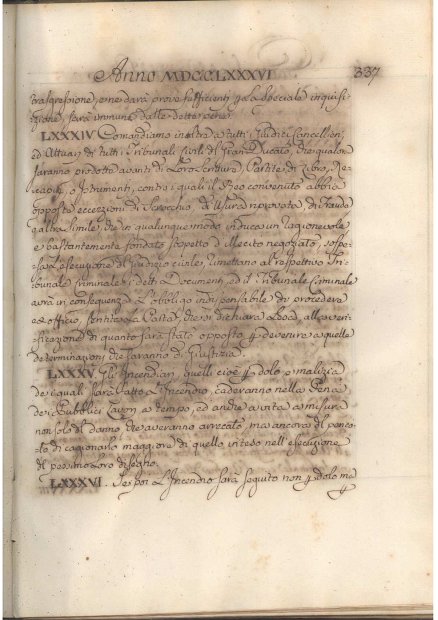 Anno MDCCLXXXVI 337
trasgressione, e ne darà prove sufficienti p la speciale inquisi-
zione, sarà immune dalle dette pene.
LXXXIV Comandiamo inoltre a tutti i Giudici Cancellieri,
ed Attuari di tutti i Tribunali Civili del Gran Ducato, che qualora
saranno prodotte avanti di Loro Scritture, Partite di Libro, Re-
capiti, o Istrumenti, contro i quali il Reo convenuto abbia
opposto eccezzioni di Scrocchio, d'Usura riprovata, di Fraude
o altra simile, che in qualunque modo induca un ragionevole
e bastantemente fondato sospetto d'illecito negoziato, sospe-
sa L'esecuzione del giudizio civile, rimettano al respettivo Tri-
bunale Criminale i detti Documenti, ed il Tribunale Criminale
avrà in conseguenza L'obbligo indispensabile di procedere
ex officio, sentita La Parte, alla veri-
ficazione di quanto sarà stato opposto p devenire a quelle
determinazioni che saranno di Giustizia.
LXXXV. Gli Incendiari, quelli cioè p dolo e malizia
dei quali sarà fatto L'Incendio, caderanno nella Pena
dei Pubblici Lavori a tempo, ed anche a vita a misura
non solo del danno che averanno arrecato, ma ancora del perico-
lo di cagionarlo maggiore di quello inteso nell'esecuzione
del pessimo Loro disegno.
LXXXVI. Se poi L'Incendio sarà seguito non p dolo ma p